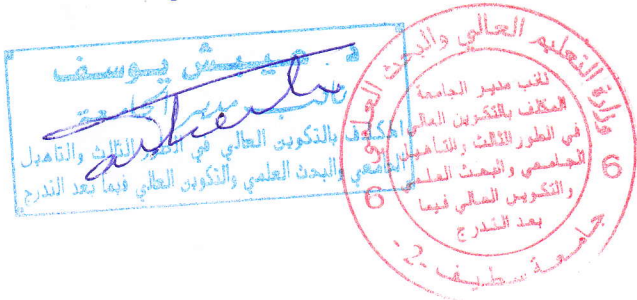 عيش يوسف
نائب مدير الجامعة
المكلف بالتكوين العالي في الطور الثالث والتأهيل
الجامعي والبحث العلمي والتكوين العالي فيما بعد التدرج
وزارة التعليم العالي والبحث العلمي
نائب مدير الجامعة
المكلف بالتكوين العالي
في الطور الثالث والتأهيل
الجامعي والبحث العلمي
والتكوين العالي فيما
بعد التدرج
6
6
جامعة سطيف -2-